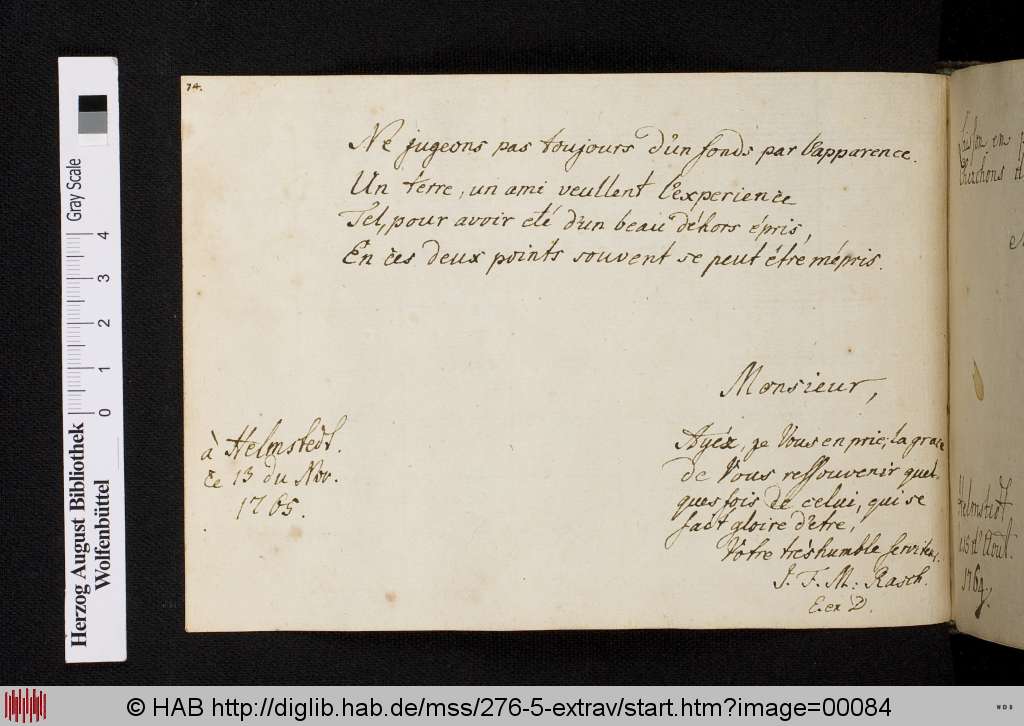 74.
Ne jugeons pas toujours d'un fonds par l'apparence.
Un terre, un ami veullent l'experience
Tel, pour avoir eté d'un beau déhors épris,
En ces deux points souvent se peut être mépris.
Monsieur,
Ayéz, je Vous en prie, la grace
de Vous ressouvenir quel-
ques fois de celui, qui se
fait gloire d'être,
Votre trés humble serviteur.
J. F. M: Rasch.
E. ex D.
à Helmstedt.
ce 13 du Nov.
1765.
en
Cherchons
Helmstedt
d' Aout.
1764.
Gray Scale
0 1 2 3 4
Herzog August Bibliothek
Wolfenbüttel
© HAB http://diglib.hab.de/mss/276-5-extrav/start.htm?image=00084
HAB